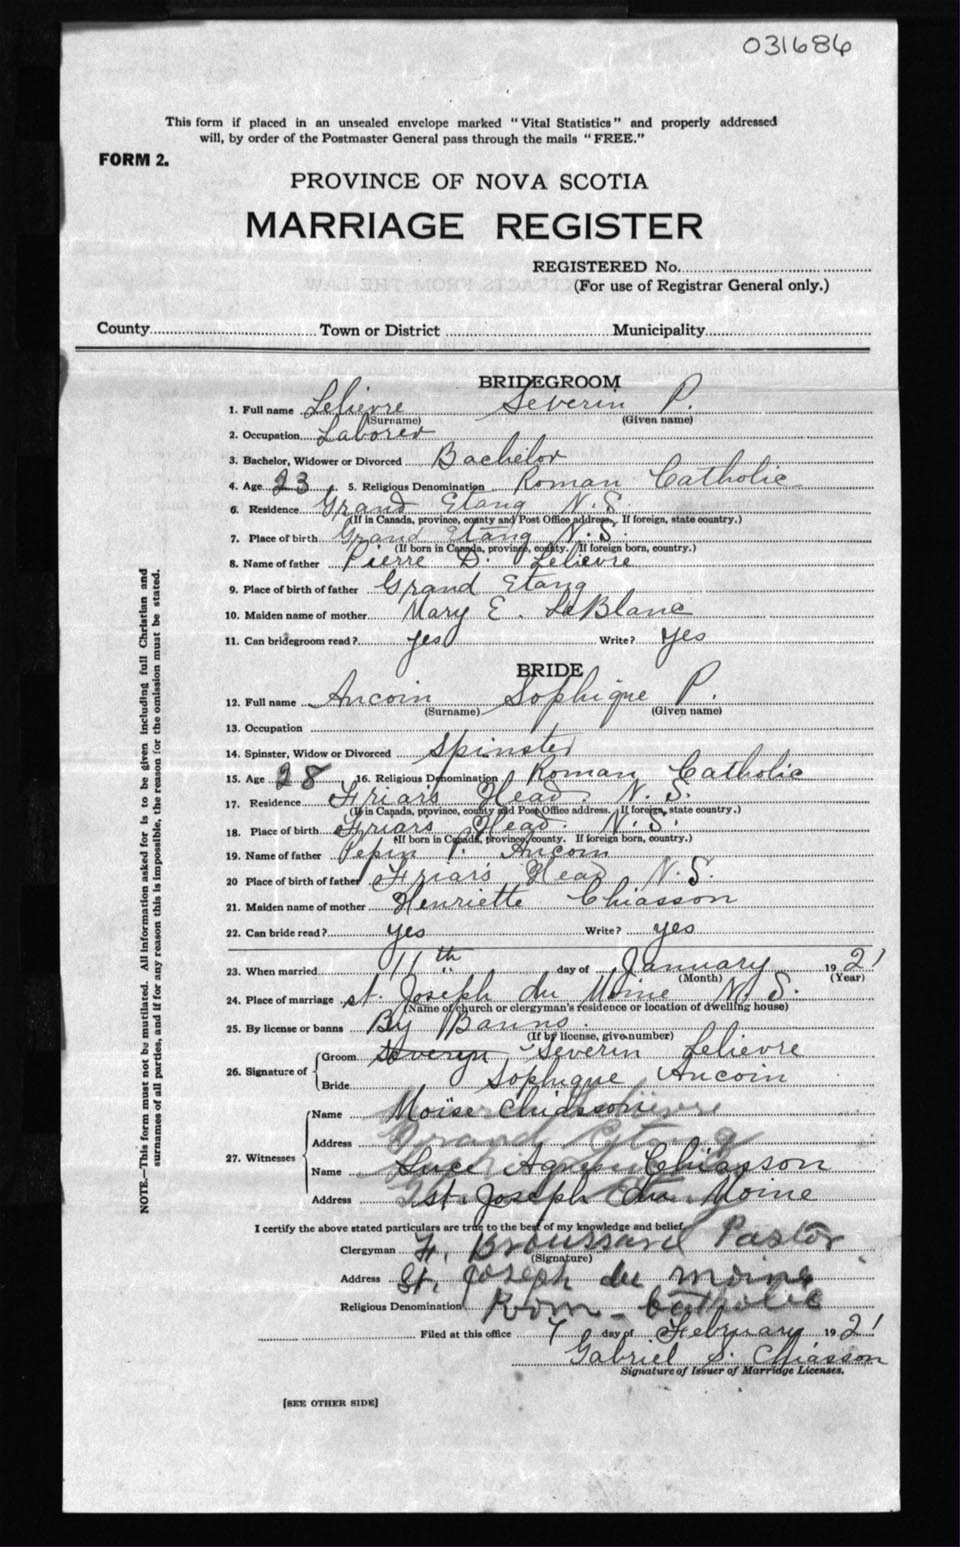 031686
This form if placed in an unsealed envelope marked "Vital Statistics" and properly addressed
will, by order of the Postmaster General pass through the mails "FREE."
FORM 2.
PROVINCE OF NOVA SCOTIA
MARRIAGE REGISTER
REGISTERED No.
(For use of Registrar General only.)
County Town or District Municipality
BRIDEGROOM
1. Full name Lelievre Severin P.
(Surname) (Given name)
2. Occupation Laborer
3. Bachelor, Widower or Divorced Bachelor
4. Age 23 5. Religious Denomination Roman Catholic
6. Residence Grand Etang N. S.
(If in Canada, province, county and Post Office address. If foreign, state country.)
7. Place of birth Grand Etang N. S.
(If born in Canada, province, county. If foreign born, country.)
8. Name of father Pierre D. Lelievre
9. Place of birth of father Grand Etang
10. Maiden name of mother Mary E. LeBlanc
11. Can bridegroom read? yes Write? yes
BRIDE
12. Full name Aucoin Sophique P.
(Surname) (Given name)
13. Occupation
14. Spinster, Widow or Divorced Spinster
15. Age 28 16. Religious Denomination Roman Catholic
17. Residence Friar's Head N. S.
(If in Canada, province, county and Post Office address. If foreign, state country.)
18. Place of birth Friars Head N. S.
(If born in Canada, province, county. If foreign born, country.)
19. Name of father Pepin P. Aucoin
20 Place of birth of father Friar's Head N. S.
21. Maiden name of mother Henriette Chiasson
22. Can bride read? yes Write? yes
23. When married 11th day of January 1921
(Month) (Year)
24. Place of marriage St. Joseph du Moine N. S.
(Name of church or clergyman's residence or location of dwelling house)
25. By license or banns By Banns.
(If by license, give number)
26. Signature of Groom Severin Lelievre
Bride Sophique Aucoin
27. Witnesses Name Moïse Chiasson
Address
Name Luce Agnes Chiasson
Address St. Joseph du Moine
I certify the above stated particulars are true to the best of my knowledge and belief.
Clergyman Broussard Pastor
(Signature)
Address St. Joseph du Moine
Religious Denomination Rom. Catholic
Filed at this office 7 day of February 1921
Gabriel S. Chiasson
Signature of Issuer of Marriage Licenses.
[SEE OTHER SIDE]
NOTE.—This form must not be mutilated. All information asked for is to be given including full Christian and
surnames of all parties, and if for any reason this is impossible, the reason for the omission must be stated.